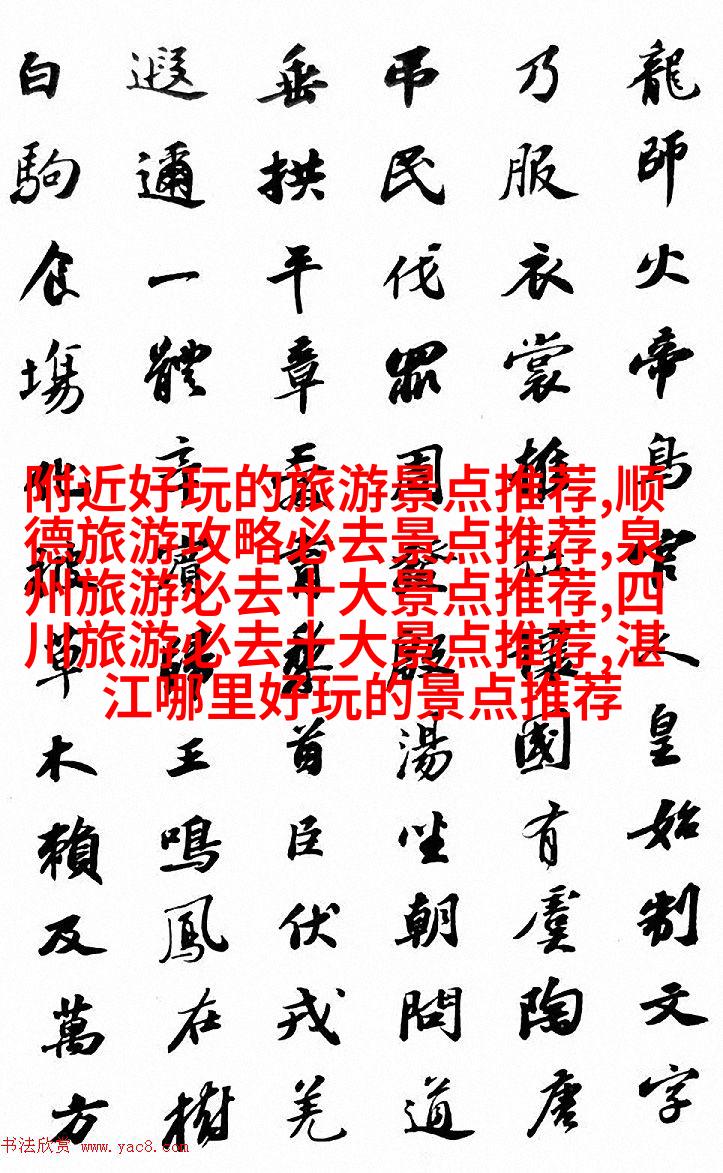 龍師火帝鳥官人皇始制文字
乃服衣裳推位讓國有虞陶唐
吊民伐罪周發殷湯坐朝問道
垂拱平章愛育黎首臣伏戎羌
遐邇一體率賓歸王鳴鳳在樹
白駒食場化被草木賴及萬方
附近好玩的旅游景点推荐,顺
德旅游攻略必去景点推荐,泉
州旅游必去十大景点推荐,四
川旅游必去十大景点推荐,湛
江哪里好玩的景点推荐
书法欣赏 www.yac8.com